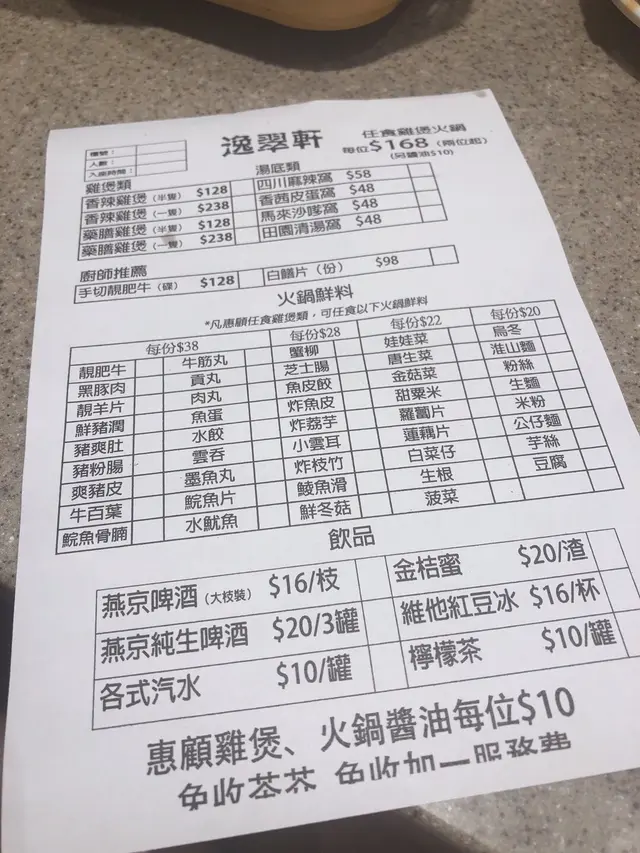 逸翠軒
任食雞煲火鍋
每位$168 (兩位起)
(另醬油$10)
檯號：
人數：
入座時間：
雞煲類
香辣雞煲 (半隻) $128
香辣雞煲 (一隻) $238
藥膳雞煲 (半隻) $128
藥膳雞煲 (一隻) $238
湯底類
四川麻辣窩 $58
香茜皮蛋窩 $48
馬來沙嗲窩 $48
田園清湯窩 $48
廚師推薦
手切靚肥牛 (碟) $128
白鱔片 (份) $98
火鍋鮮料
*凡惠顧任食雞煲類，可任食以下火鍋鮮料
每份$38
靚肥牛 牛筋丸
黑豚肉 貢丸
靚羊片 肉丸
鮮豬潤 魚蛋
豬爽肚 水餃
豬粉腸 雲吞
爽豬皮 墨魚丸
牛百葉 鯇魚片
鯇魚骨腩 水魷魚
每份$28
蟹柳
芝士腸
魚皮餃
炸魚皮
炸荔芋
小雲耳
炸枝竹
鯪魚滑
鮮冬菇
每份$22
娃娃菜
唐生菜
金菇菜
甜粟米
蘿蔔片
蓮藕片
白菜仔
生根
菠菜
每份$20
烏冬
淮山麵
粉絲
生麵
米粉
公仔麵
芋絲
豆腐
飲品
燕京啤酒 (大枝裝) $16/枝
燕京純生啤酒 $20/3罐
各式汽水 $10/罐
金桔蜜 $20/渣
維他紅豆冰 $16/杯
檸檬茶 $10/罐
惠顧雞煲、火鍋醬油每位$10
免收茶芥 免收加一服務費